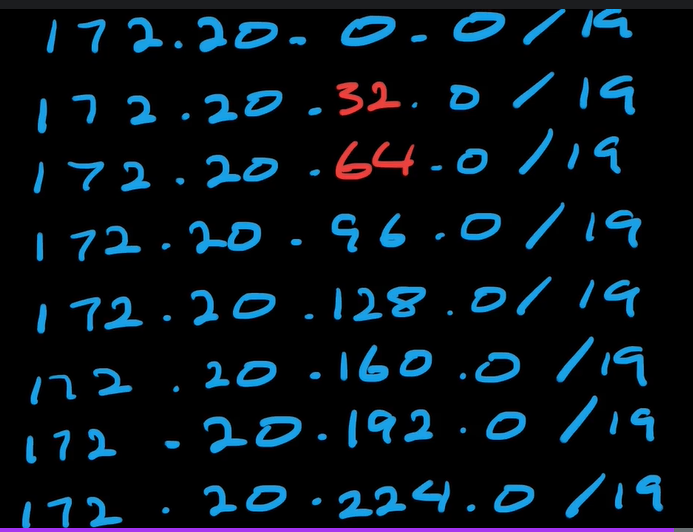 172.20.0.0/19
172.20.32.0/19
172.20.64.0/19
172.20.96.0/19
172.20.128.0/19
172.20.160.0/19
172.20.192.0/19
172.20.224.0/19